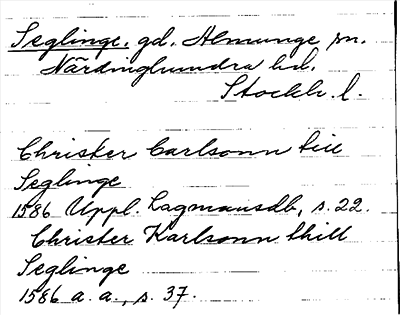 Seglinge, gd, Almunge sn.
Närdinghundra hd,
Stockh. l.
Christer Carlsonn till
Seglinge
1586 Uppl. Lagmansdb, s. 22.
Christer Karlsonn thill
Seglinge
1586 a. a., s. 37.